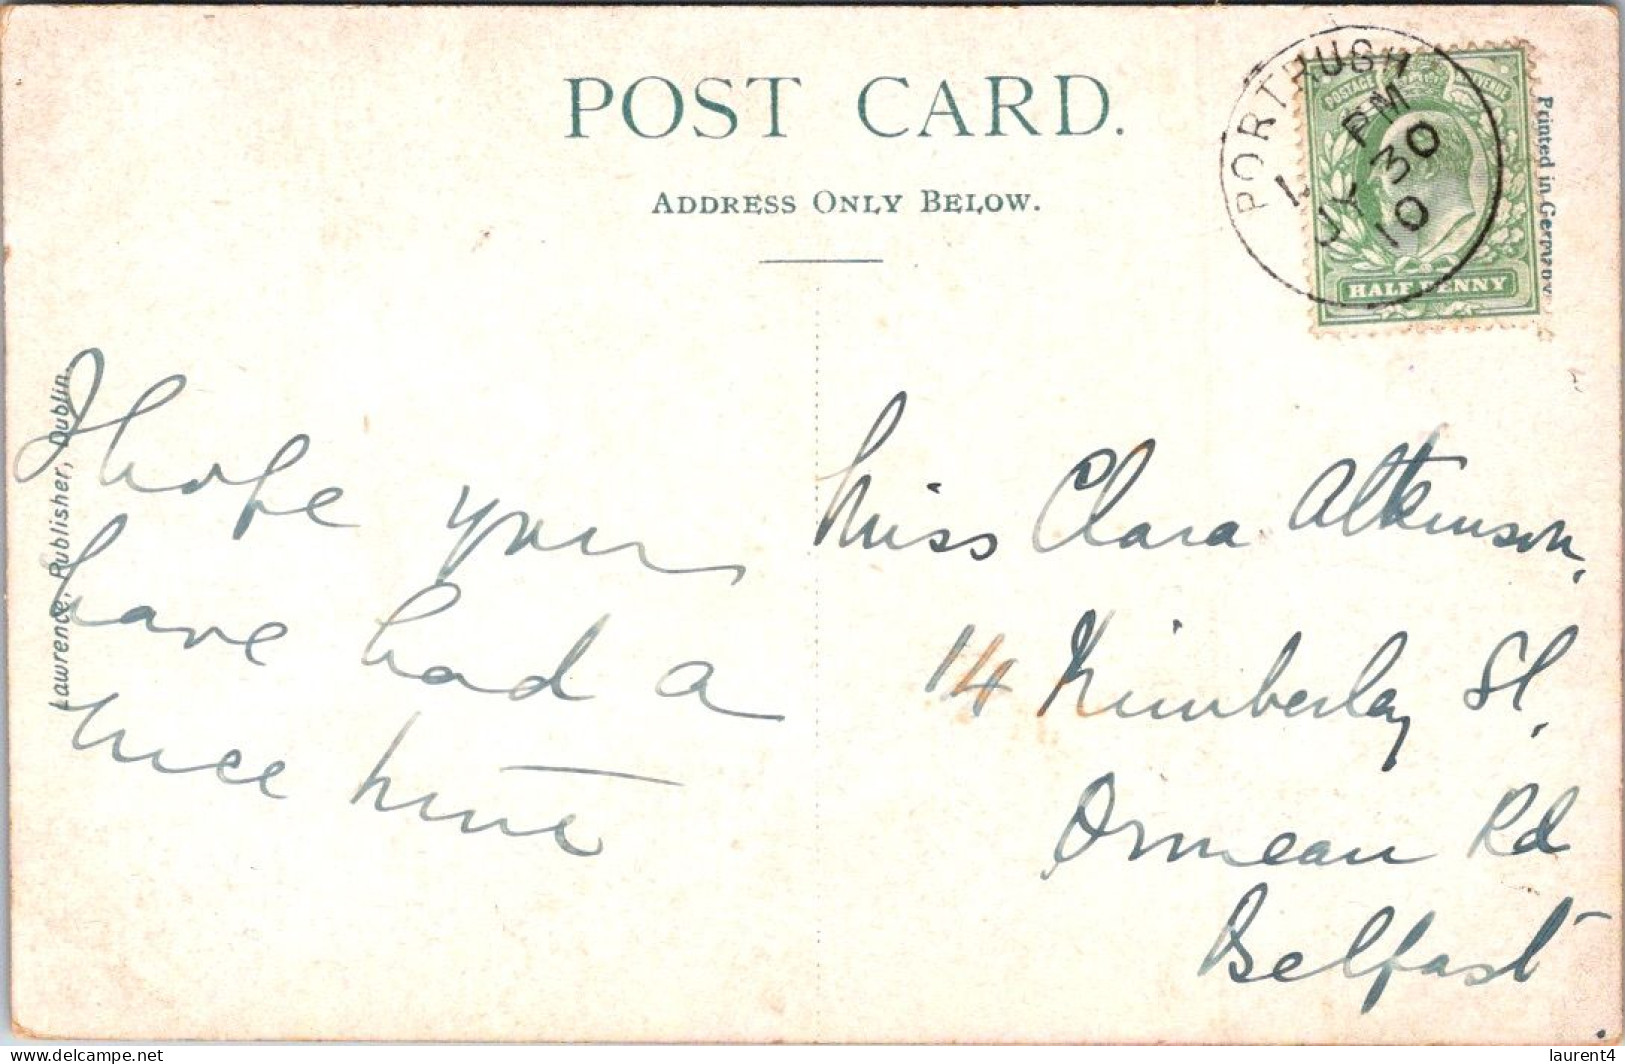 POST CARD.
ADDRESS ONLY BELOW.
PORTRUSH
PM
JY 30
10
POSTAGE REVENUE
HALF PENNY
Printed in Germany
Lawrence, Publisher, Dublin.
I hope you
have had a
nice time
Miss Clara Atkinson,
14 Kimberley St,
Ormeau Rd
Belfast
laurent4